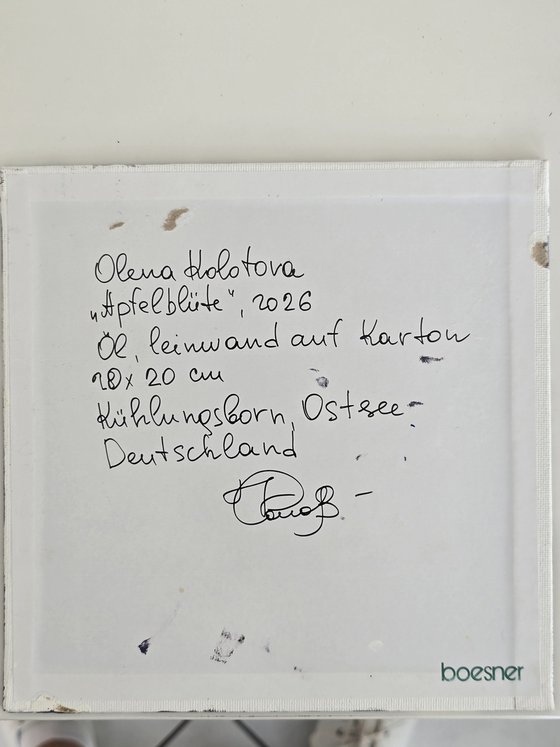 Olena Kolotova
„Apfelblüte“, 2026
Öl, leinwand auf Karton
20 x 20 cm
Kühlungsborn, Ostsee
Deutschland
boesner